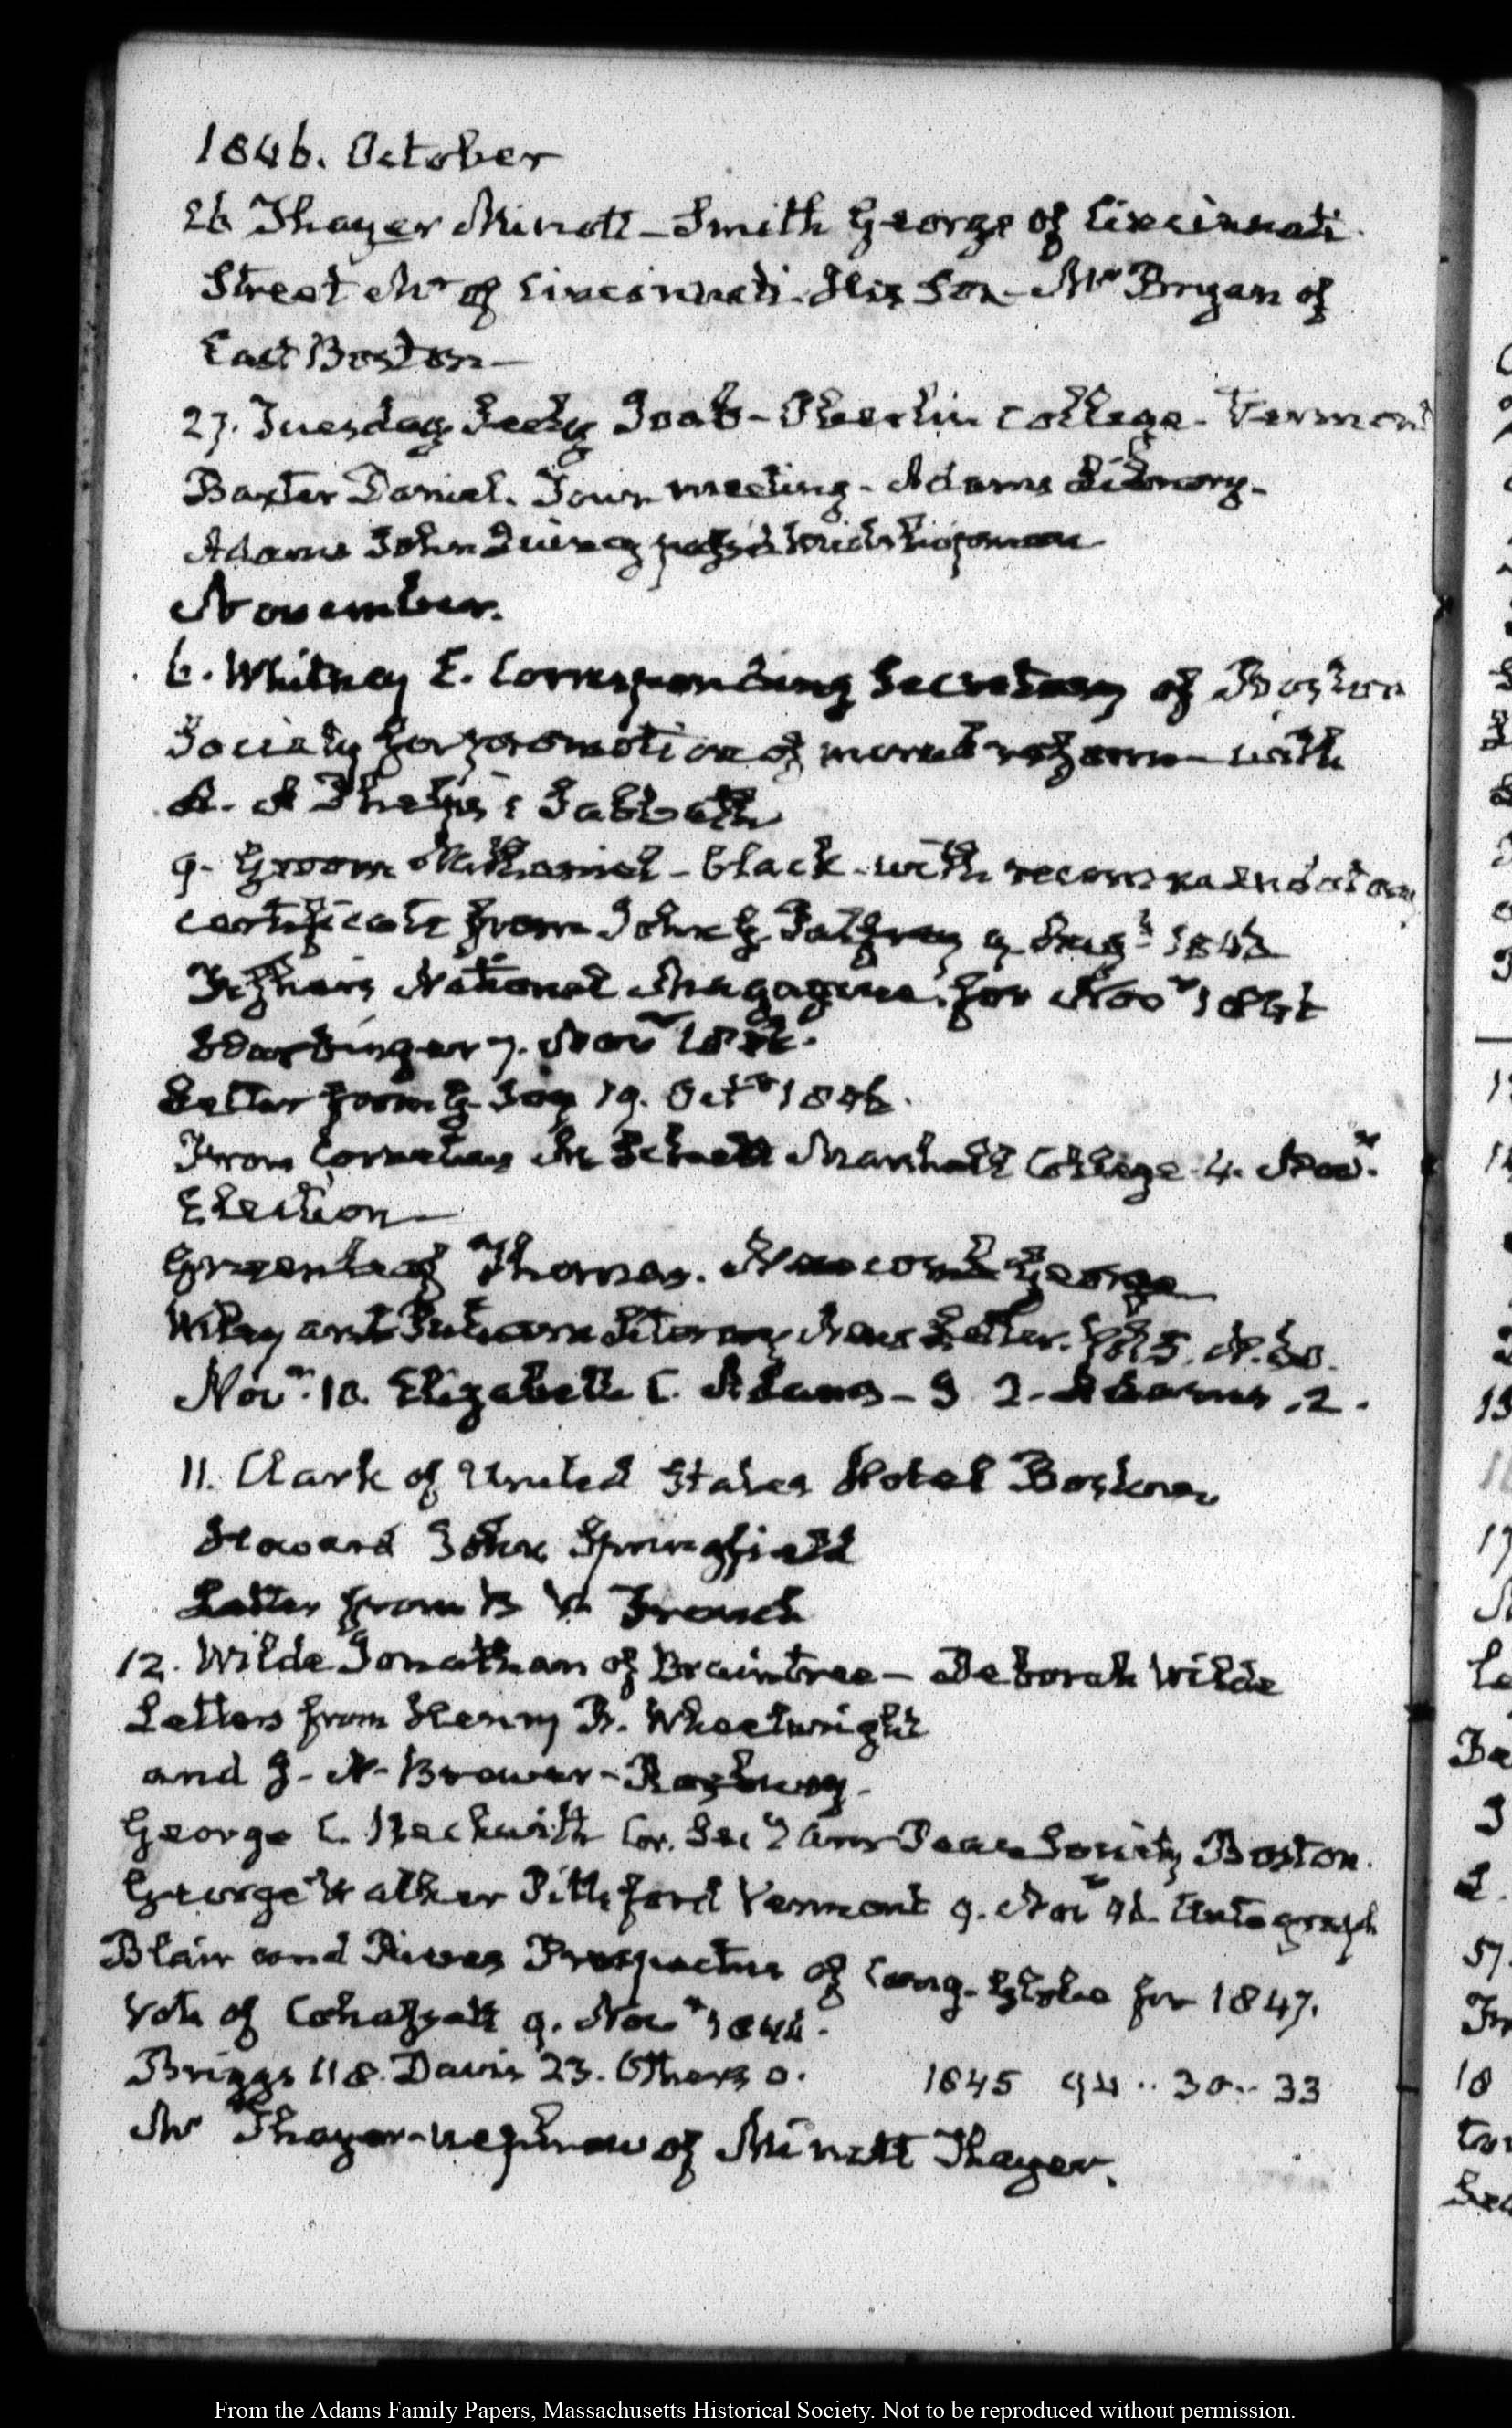 1846. October
26 Thayer Minott – Smith George of Cincinnati.
Street Mr of Cincinnati. His Son – Mr Bryan of
East Boston –
27. Tuesday Seely Joab – Oberlin College. Vermont
Baxter Daniel. Town meeting – Adams Library –
Adams John Quincy pass'd midshipman
November.
6. Whitney E. Corresponding Secretary of Boston
Society for promotion of moral reform – with
A. A Phelps's Sabbath
9. Groom Nathaniel – black – with recommendatory
certificate from John G. Palfrey 9 Aug.t 1843
National Magazine for Novr 1846
Harbinger 7. Novr 1846.
Letter from G Joy 19. Octr 1846.
From Cornelius Marshall College 4. Novr.
Election –
Greenleaf Thomas. Newcomb George
Wiley and Putnam Literary News Letter. Vol 5. N. 60.
Novr. 10. Elizabeth C. Adams – J. Q. Adams .2.
11. Clark of United States Hotel Boston
Howard John Springfield
Letter from B V French
12. Wilde Jonathan of Braintree – Deborah Wilde
Letters from Henry B. Wheelwright
and J. N. Brewer – Roxbury.
George C. Beckwith Cor. Sec y Am Peace Society Boston.
George Walker Pittsford Vermont 9. Novr 46. Autograph
Blair and Rives Prospectus of Cong. Globe for 1847.
Vote of Cohassett 9. Novr 1846.
Briggs 118. Davis 23. Others 0. 1845 94 .. 30 .. 33
Mr Thayer – nephew of Minott Thayer.
From the Adams Family Papers, Massachusetts Historical Society. Not to be reproduced without permission.